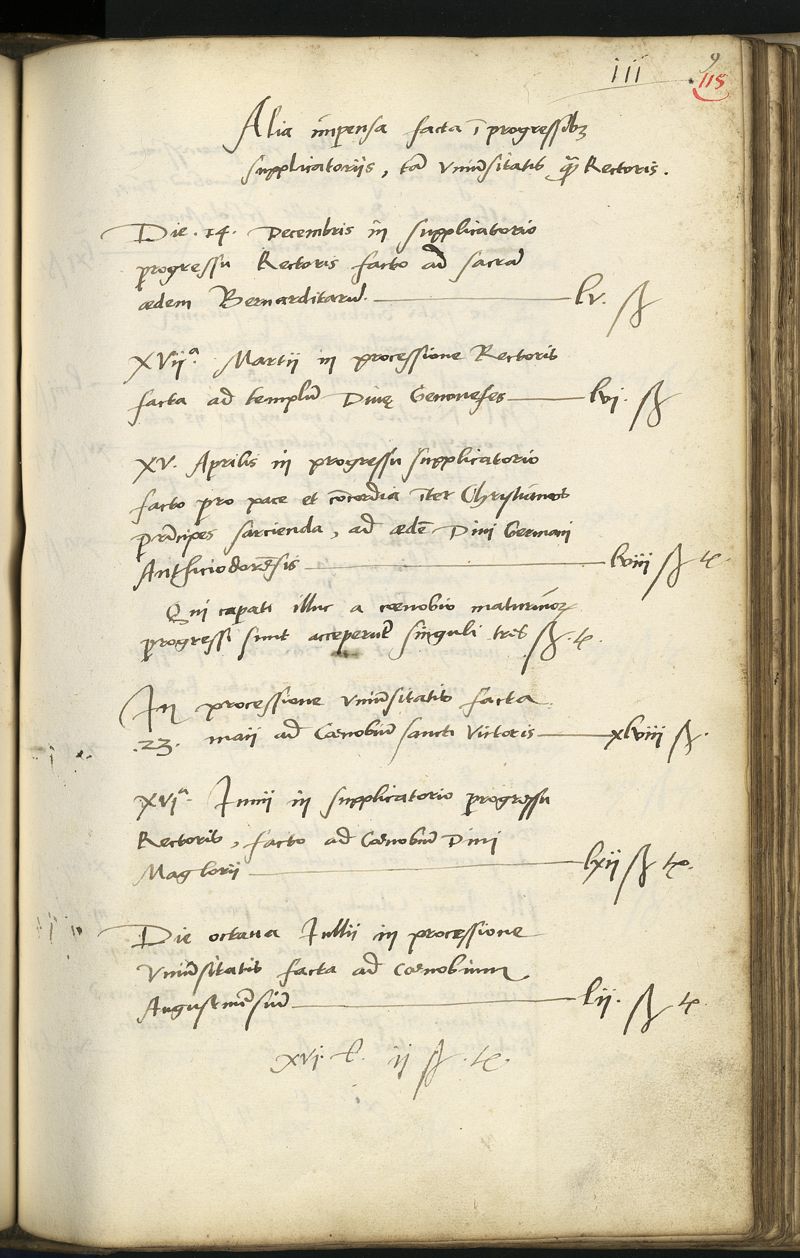 iii 9
115
Alia impensa facta ī progressibꝫ
supplicatoriis, tā Uniūsitatis quā Rectoris.
Die .14. Decembris in supplicatorio
progressu Rectoris facto ad sacrā
ædem Bernarditarū. lv. ß
XVIIᵃ. Martii in processione Rectoris
facta ad templū Divę Genovefes lvi. ß
XV. Aprilis in progressu supplicatorio
facto pro pace et cōcordia īter Christianos
prīcipes sarcienda, ad ædē Divi Germani
Anthiciodorēsis lviii ß
Qui capati illuc a cœnobio maturinoꝝ
progressi sunt acceperūt singuli tres ß.
In processione Uniūsitatis facta
.23. maii ad Cœnobiū sancti Victoris xlviii ß.
XVIᵃ. Junii in supplicatorio progressu
Rectoris, facto ad Cœnobiū Divi
Maglorii lxii ß
Die octava Jullii in processione
Uniūsitatis facta ad cœnobium
Augustinēsiū lii. ß
xvi. ł. ii ß